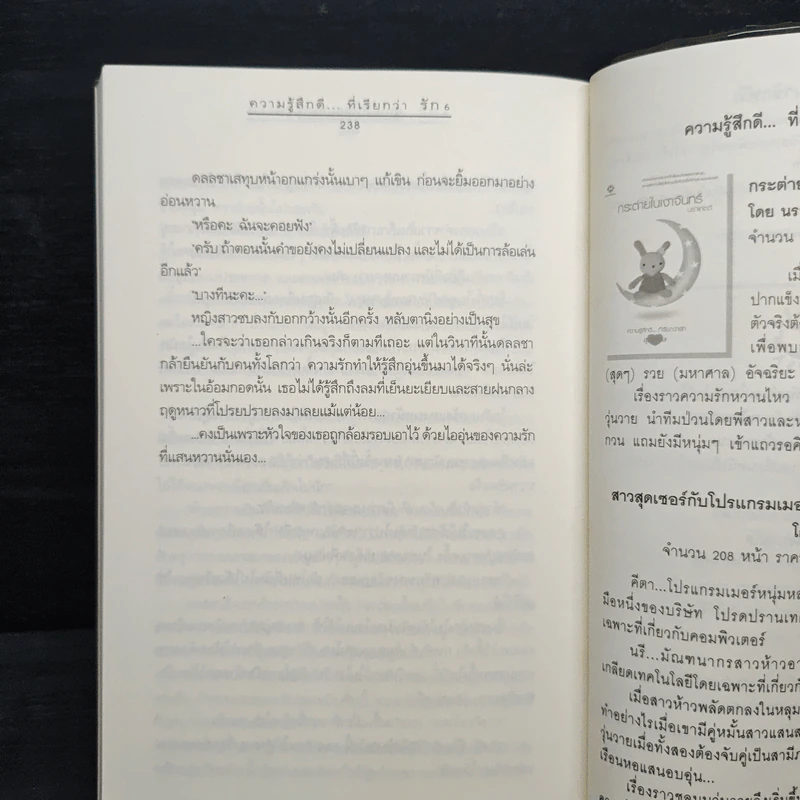 ความรู้สึกดี... ที่เรียกว่า รัก 6
238
ดลลชาเสทุบหน้าอกแกร่งนั้นเบาๆ แก้เขิน ก่อนจะยิ้มออกมาอย่าง
อ่อนหวาน
"หรือคะ ฉันจะคอยฟัง"
"ครับ ถ้าตอนนั้นคำขอยังคงไม่เปลี่ยนแปลง และไม่ได้เป็นการล้อเล่น
อีกแล้ว"
"บางทีนะคะ..."
หญิงสาวซบลงกับอกกว้างนั้นอีกครั้ง หลับตานิ่งอย่างเป็นสุข
...ใครจะว่าเธอกล่าวเกินจริงก็ตามทีเถอะ แต่ในวินาทีนั้นดลลชา
กล้ายืนยันกับคนทั้งโลกว่า ความรักทำให้รู้สึกอุ่นขึ้นมาได้จริงๆ นั่นล่ะ
เพราะในอ้อมกอดนั้น เธอไม่ได้รู้สึกถึงลมที่เย็นยะเยียบและสายฝนกลาง
ฤดูหนาวที่โปรยปรายลงมาเลยแม้แต่น้อย...
...คงเป็นเพราะหัวใจของเธอถูกล้อมรอบเอาไว้ ด้วยไออุ่นของความรัก
ที่แสนหวานนั่นเอง...
ความรู้สึกดี... ที่
กระต่ายในเงาจันทร์
กระต่าย
โดย นร
จำนวน
เมื่
ปากแข็ง
ตัวจริงต้
เพื่อพบอ
(สุดๆ) รวย (มหาศาล) อัจฉริยะ
เรื่องราวความรักหวานไหว
วุ่นวาย นำทีมป่วนโดยพี่สาวและน
กวน แถมยังมีหนุ่มๆ เข้าแถวรอคิ
สาวสุดเซอร์กับโปรแกรมเมอร์
โ
จำนวน 208 หน้า ราคา
คีตา...โปรแกรมเมอร์หนุ่มหล
มือหนึ่งของบริษัท โปรดปรานเทค
เฉพาะที่เกี่ยวกับคอมพิวเตอร์
นรี...มัณฑนากรสาวห้าวอา
เกลียดเทคโนโลยีโดยเฉพาะที่เกี่ยวกั
เมื่อสาวห้าวพลัดตกลงในหลุม
ทำอย่างไรเมื่อเขามีคู่หมั้นสาวแสนส
วุ่นวายเมื่อทั้งสองต้องจับคู่เป็นสามีภ
เรือนหอแสนอบอุ่น...